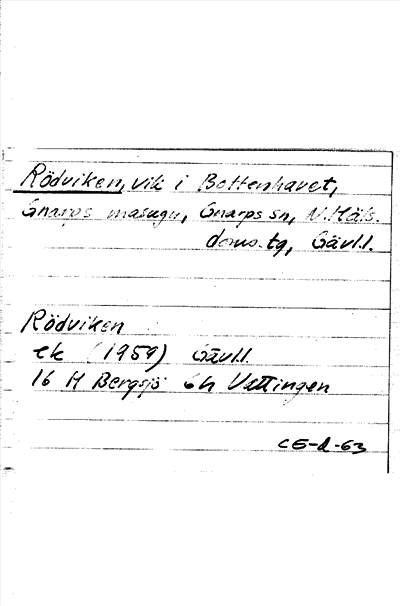 Rödviken, vik i Bottenhavet,
Gnarps masugn, Gnarps sn, N. Häls.
doms.tg, Gävl.l.
Rödviken
ek (1959) Gävl.l.
16 H Bergsjö 6h Vattingen
CE-d-63